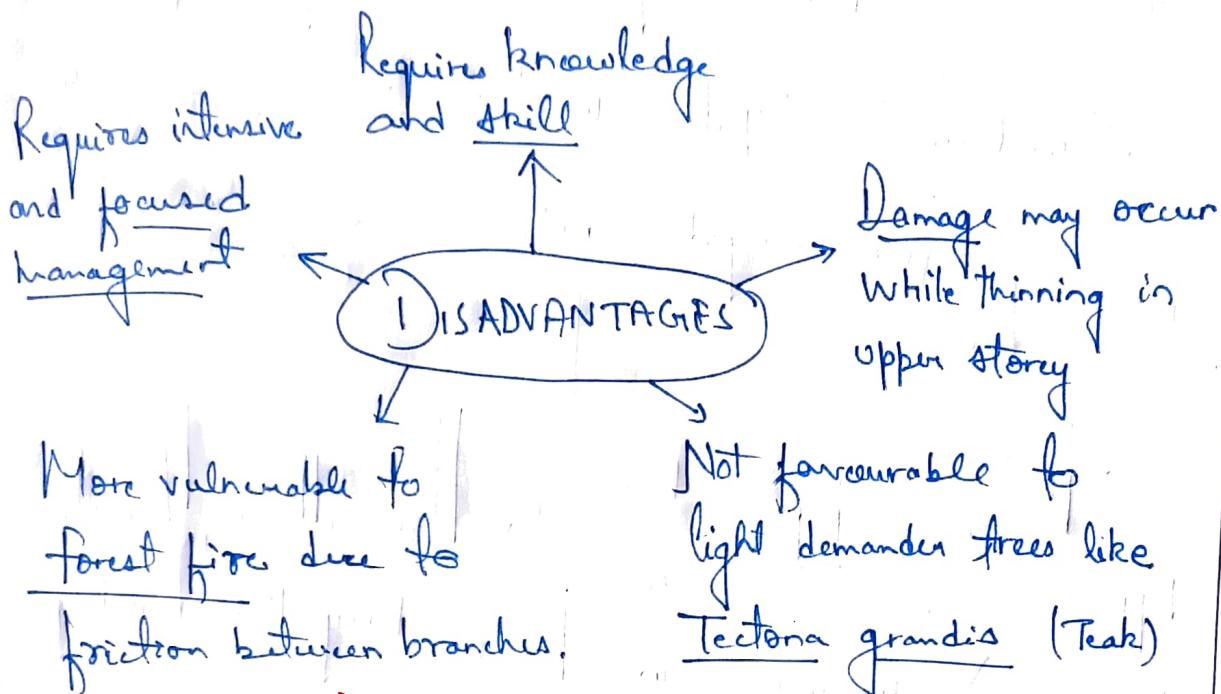 Requires knowledge
and skill
Requires intensive
and focused
management
Damage may occur
while thinning in
upper storey
DISADVANTAGES
More vulnerable to
forest fire due to
friction between branches.
Not favourable to
light demander trees like
Tectona grandis (Teak)